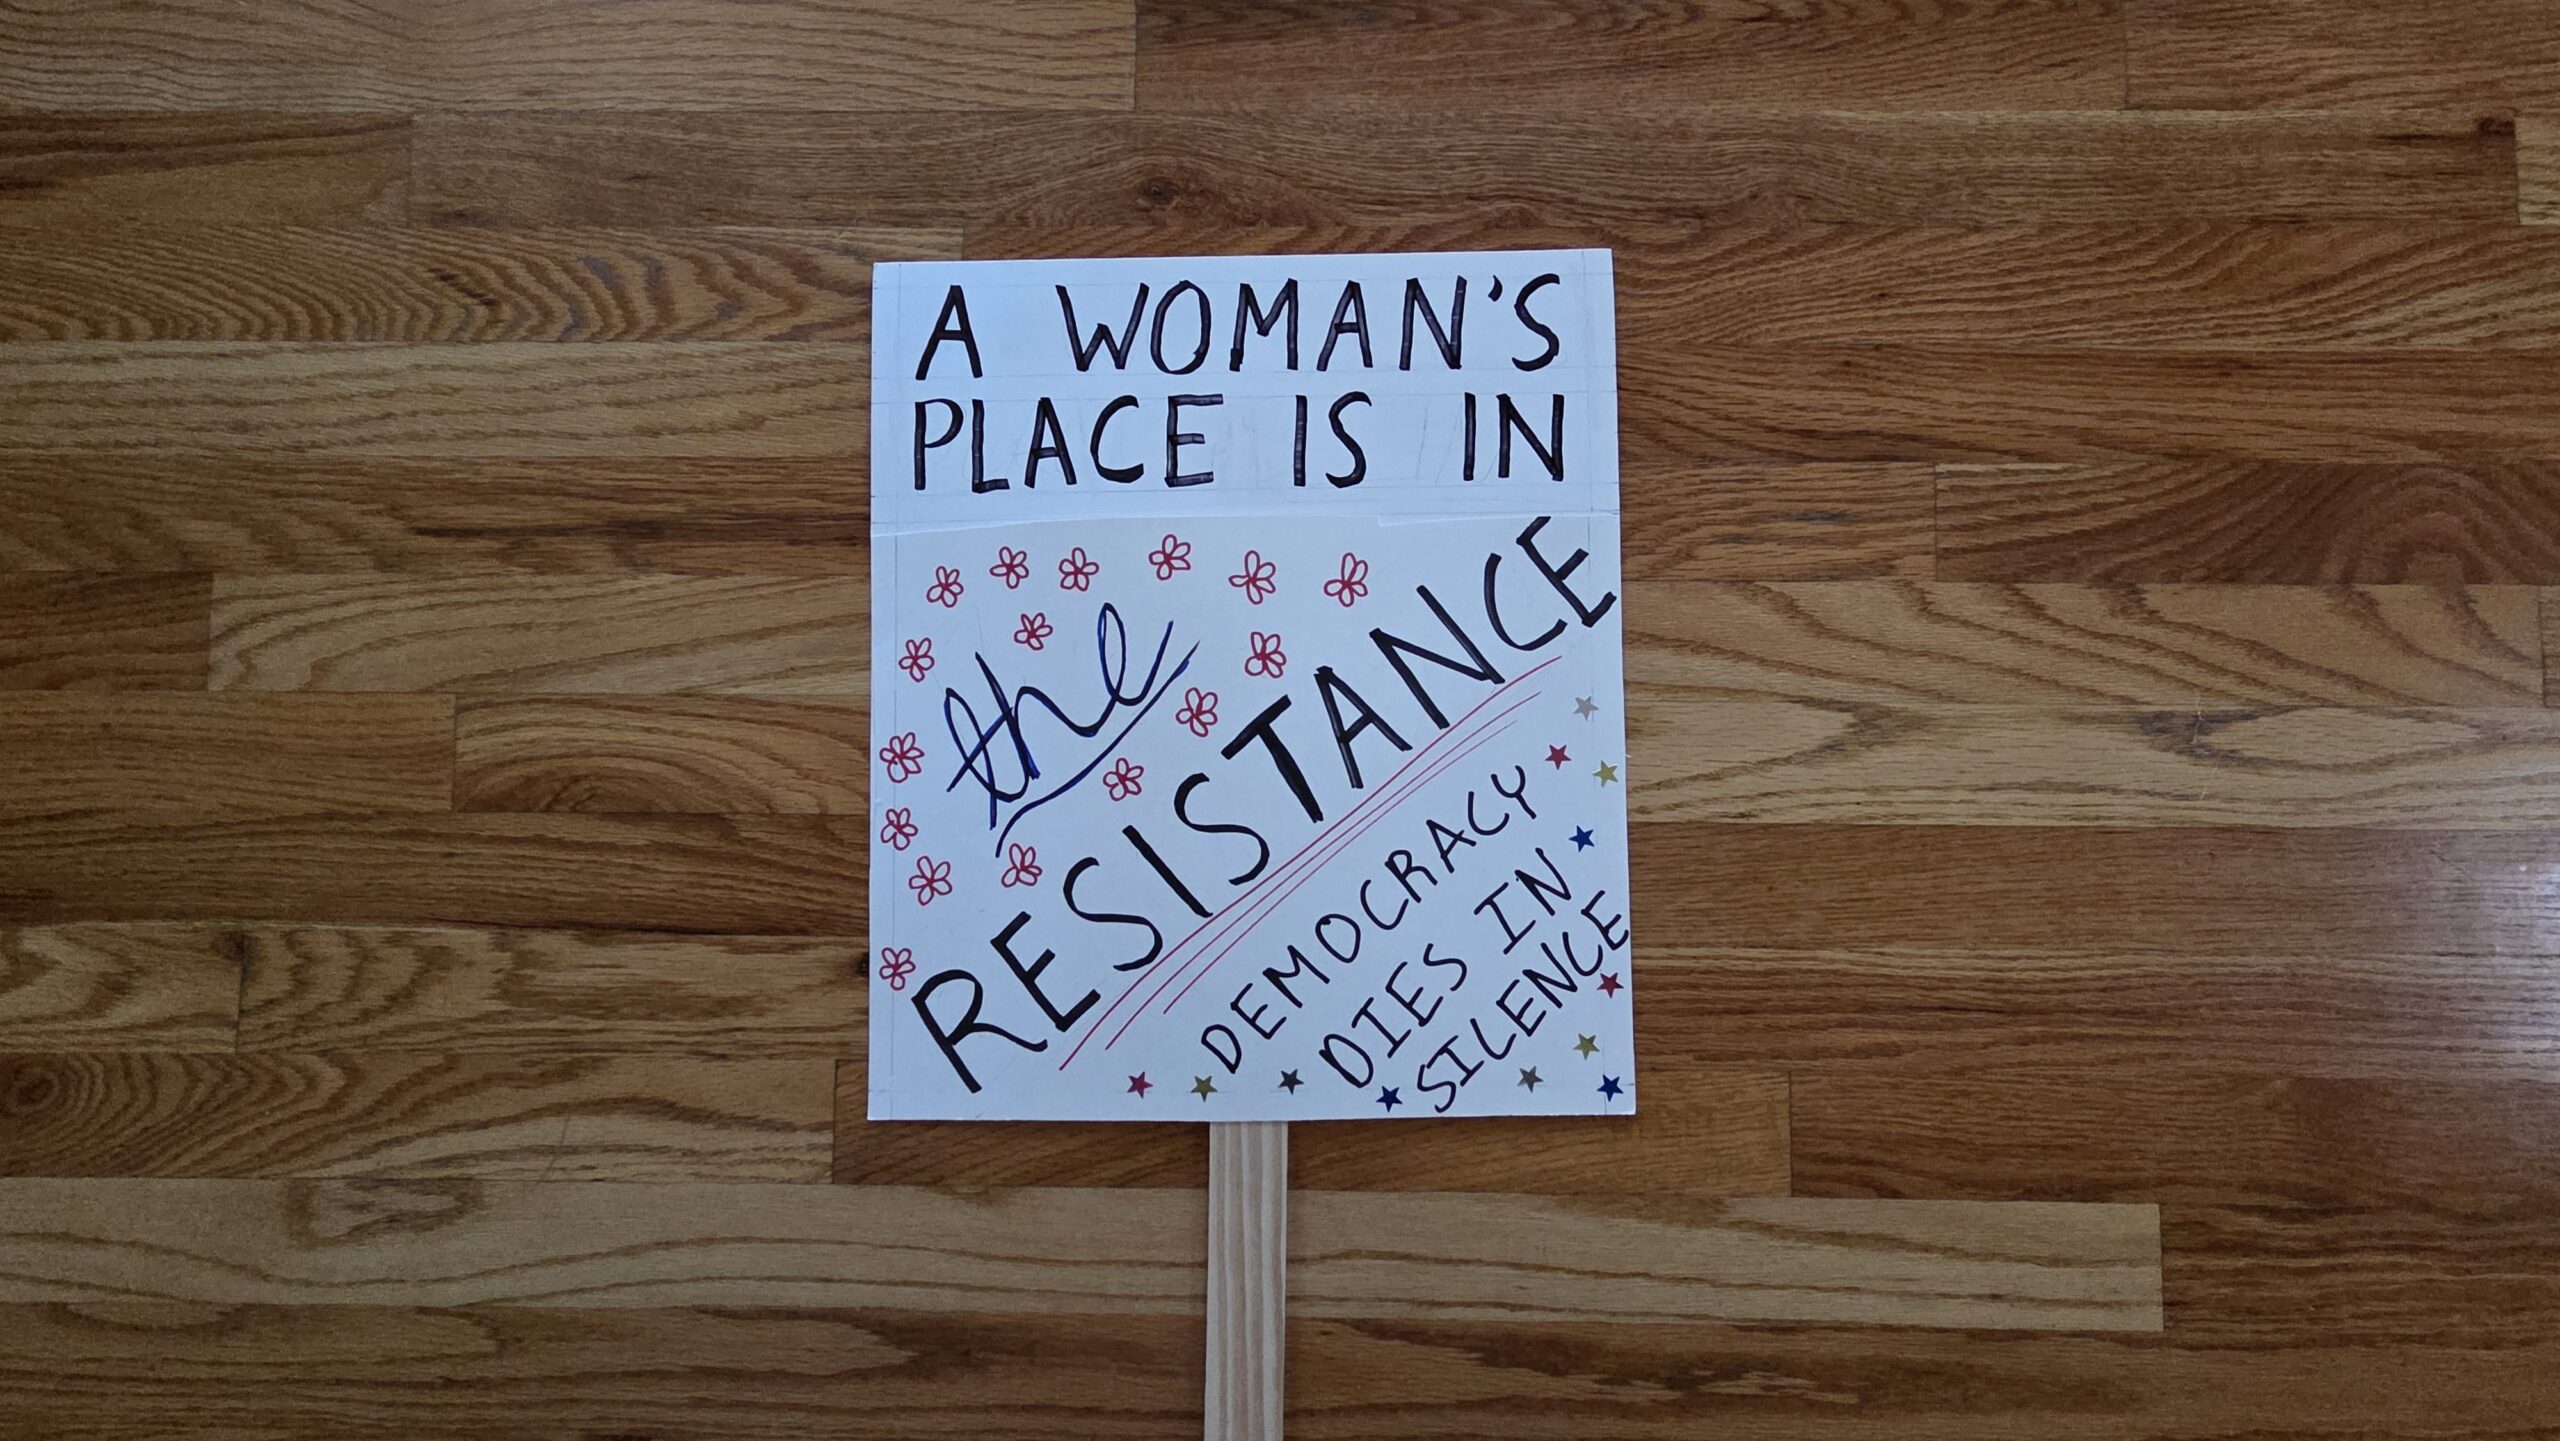 A WOMAN'S
PLACE IS IN
the
RESISTANCE
DEMOCRACY
DIES IN
SILENCE